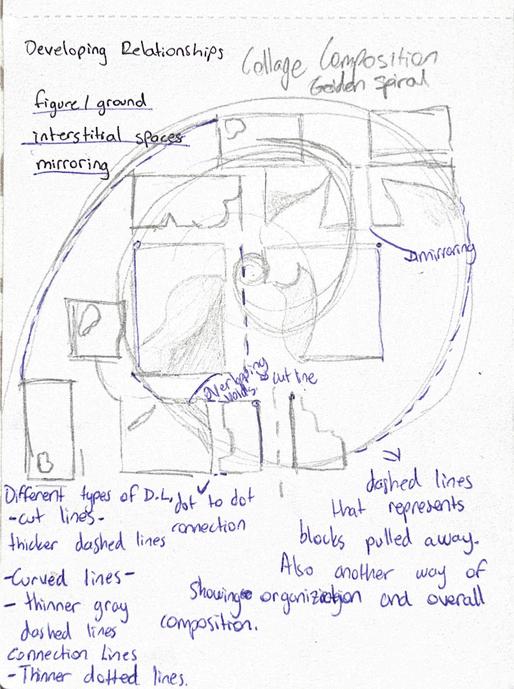 Developing Relationships
Collage Composition
Golden Spiral
figure/ground
interstitial spaces
mirroring
mirroring
overlapping
voids
cut line
Different types of D.L.
-cut lines-
thicker dashed lines
dot to dot
connection
-Curved lines-
- thinner gray
dashed lines
Connection Lines
-Thinner dotted lines.
dashed lines
that represents
blocks pulled away.
Also another way of
showing organization and overall
composition.